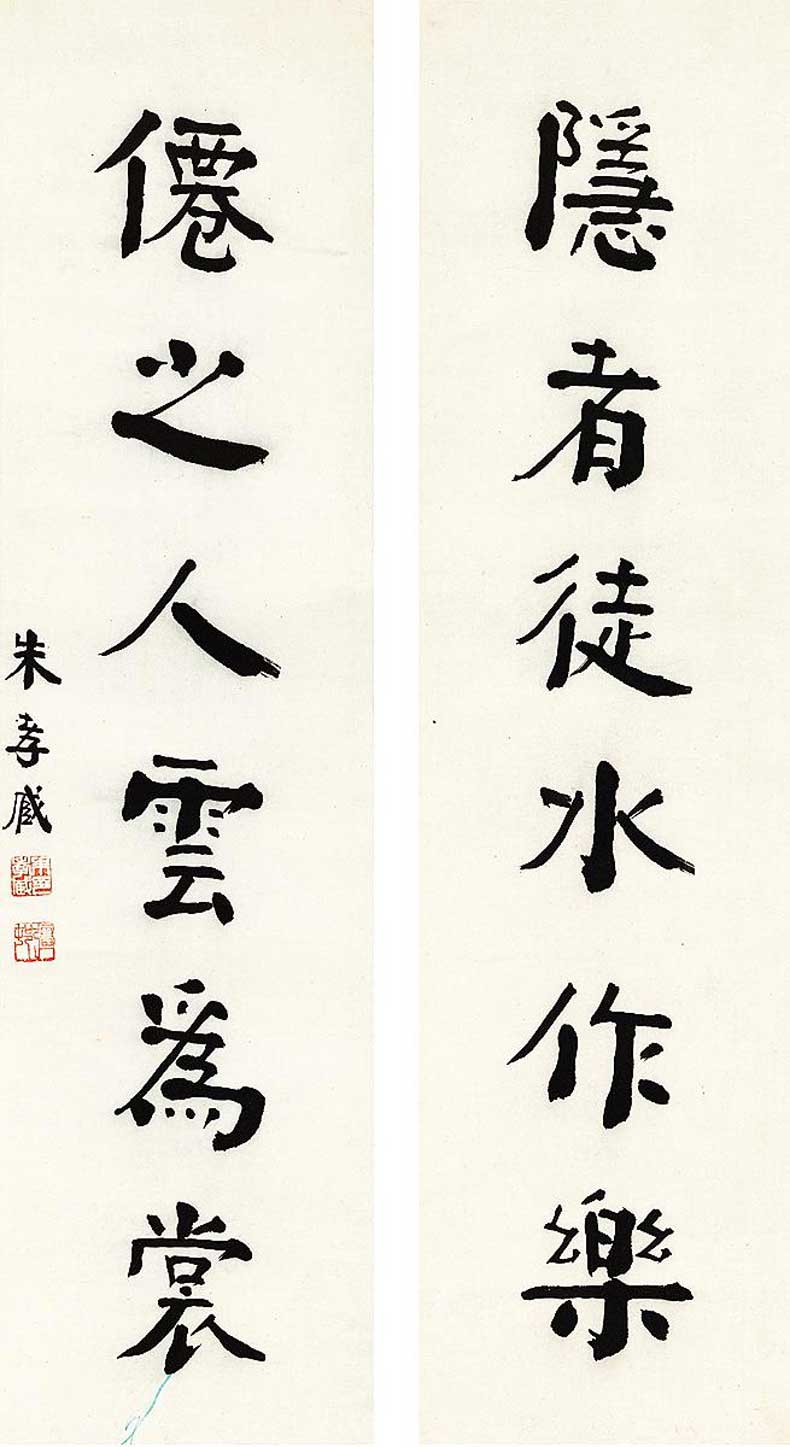 隱者徒水作樂
僊之人雲爲裳
朱孝臧